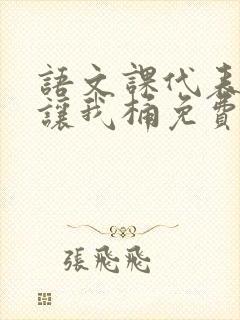 語文課代表
讓我桶免費
張飛飛